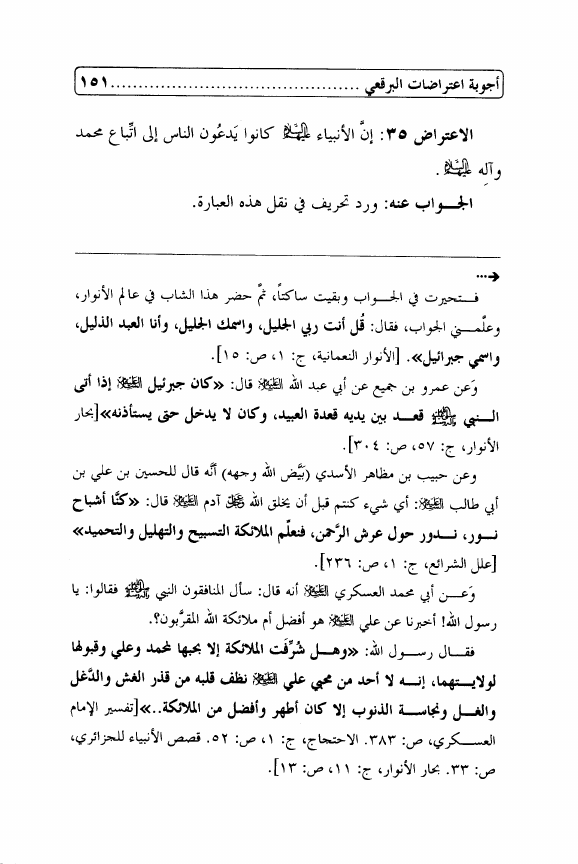 أجوبة اعتراضات البرقعي ............................................. ١٥١
الاعتراض ٣٥: إنَّ الأنبياء عليهم السلام كانوا يَدعُون الناس إلى اتِّباع محمد
وآلِه عليهم السلام.
الجـــواب عنه: ورد تحريف في نقل هذه العبارة.
...
فـــتحيرت في الجـــواب وبقيت ساكتاً، ثمَّ حضر هذا الشاب في عالم الأنوار،
وعلّمـــني الجواب، فقال: قُل أنت ربي الجليل، واسمك الجليل، وأنا العبد الذليل،
واسمي جبرائيل». [الأنوار النعمانية، ج: ١، ص: ١٥].
وَعن عمرو بن جميع عن أبي عبد الله عليه السلام قال: «كان جبرئيل عليه السلام إذا أتى
الـــنبي قعـــد بين يديه قعدة العبيد، وكان لا يدخل حتى يستأذنه»[بحار
الأنوار، ج: ٥٧، ص: ٣٠٤].
وعن حبيب بن مظاهر الأسدي (بَيَّض الله وجهه) أنَّه قال للحسين بن علي بن
أبي طالب عليه السلام: أي شيء كنتم قبل أن يخلق الله آدم عليه السلام قال: «كنَّا أشباح
نـــور، نـــدور حول عرش الرَّحمن، فنعلّم الملائكة التسبيح والتهليل والتحميد»
[علل الشرائع، ج: ١، ص: ٢٣٦].
وَعـــن أبي محمد العسكري عليه السلام أنه قال: سأل المنافقون النبي فقالوا: يا
رسول الله! أخبرنا عن علي عليه السلام هو أفضل أم ملائكة الله المقرَّبون؟.
فقـــال رســـول الله: «وهـــل شُرِّفَت الملائكة إلا بحبها لمحمد وعلي وقبولها
لولايـــتهما، إنـــه لا أحد من محبي علي عليه السلام نظف قلبه من قذر الغش والدَّغل
والغـــل ونجاســـة الذنوب إلا كان أطهر وأفضل من الملائكة..»[تفسير الإمام
العســـكري، ص: ٣٨٣. الاحتجاج، ج: ١، ص: ٥٢. قصص الأنبياء للجزائري،
ص: ٣٣. بحار الأنوار، ج: ١١، ص: ١٣].